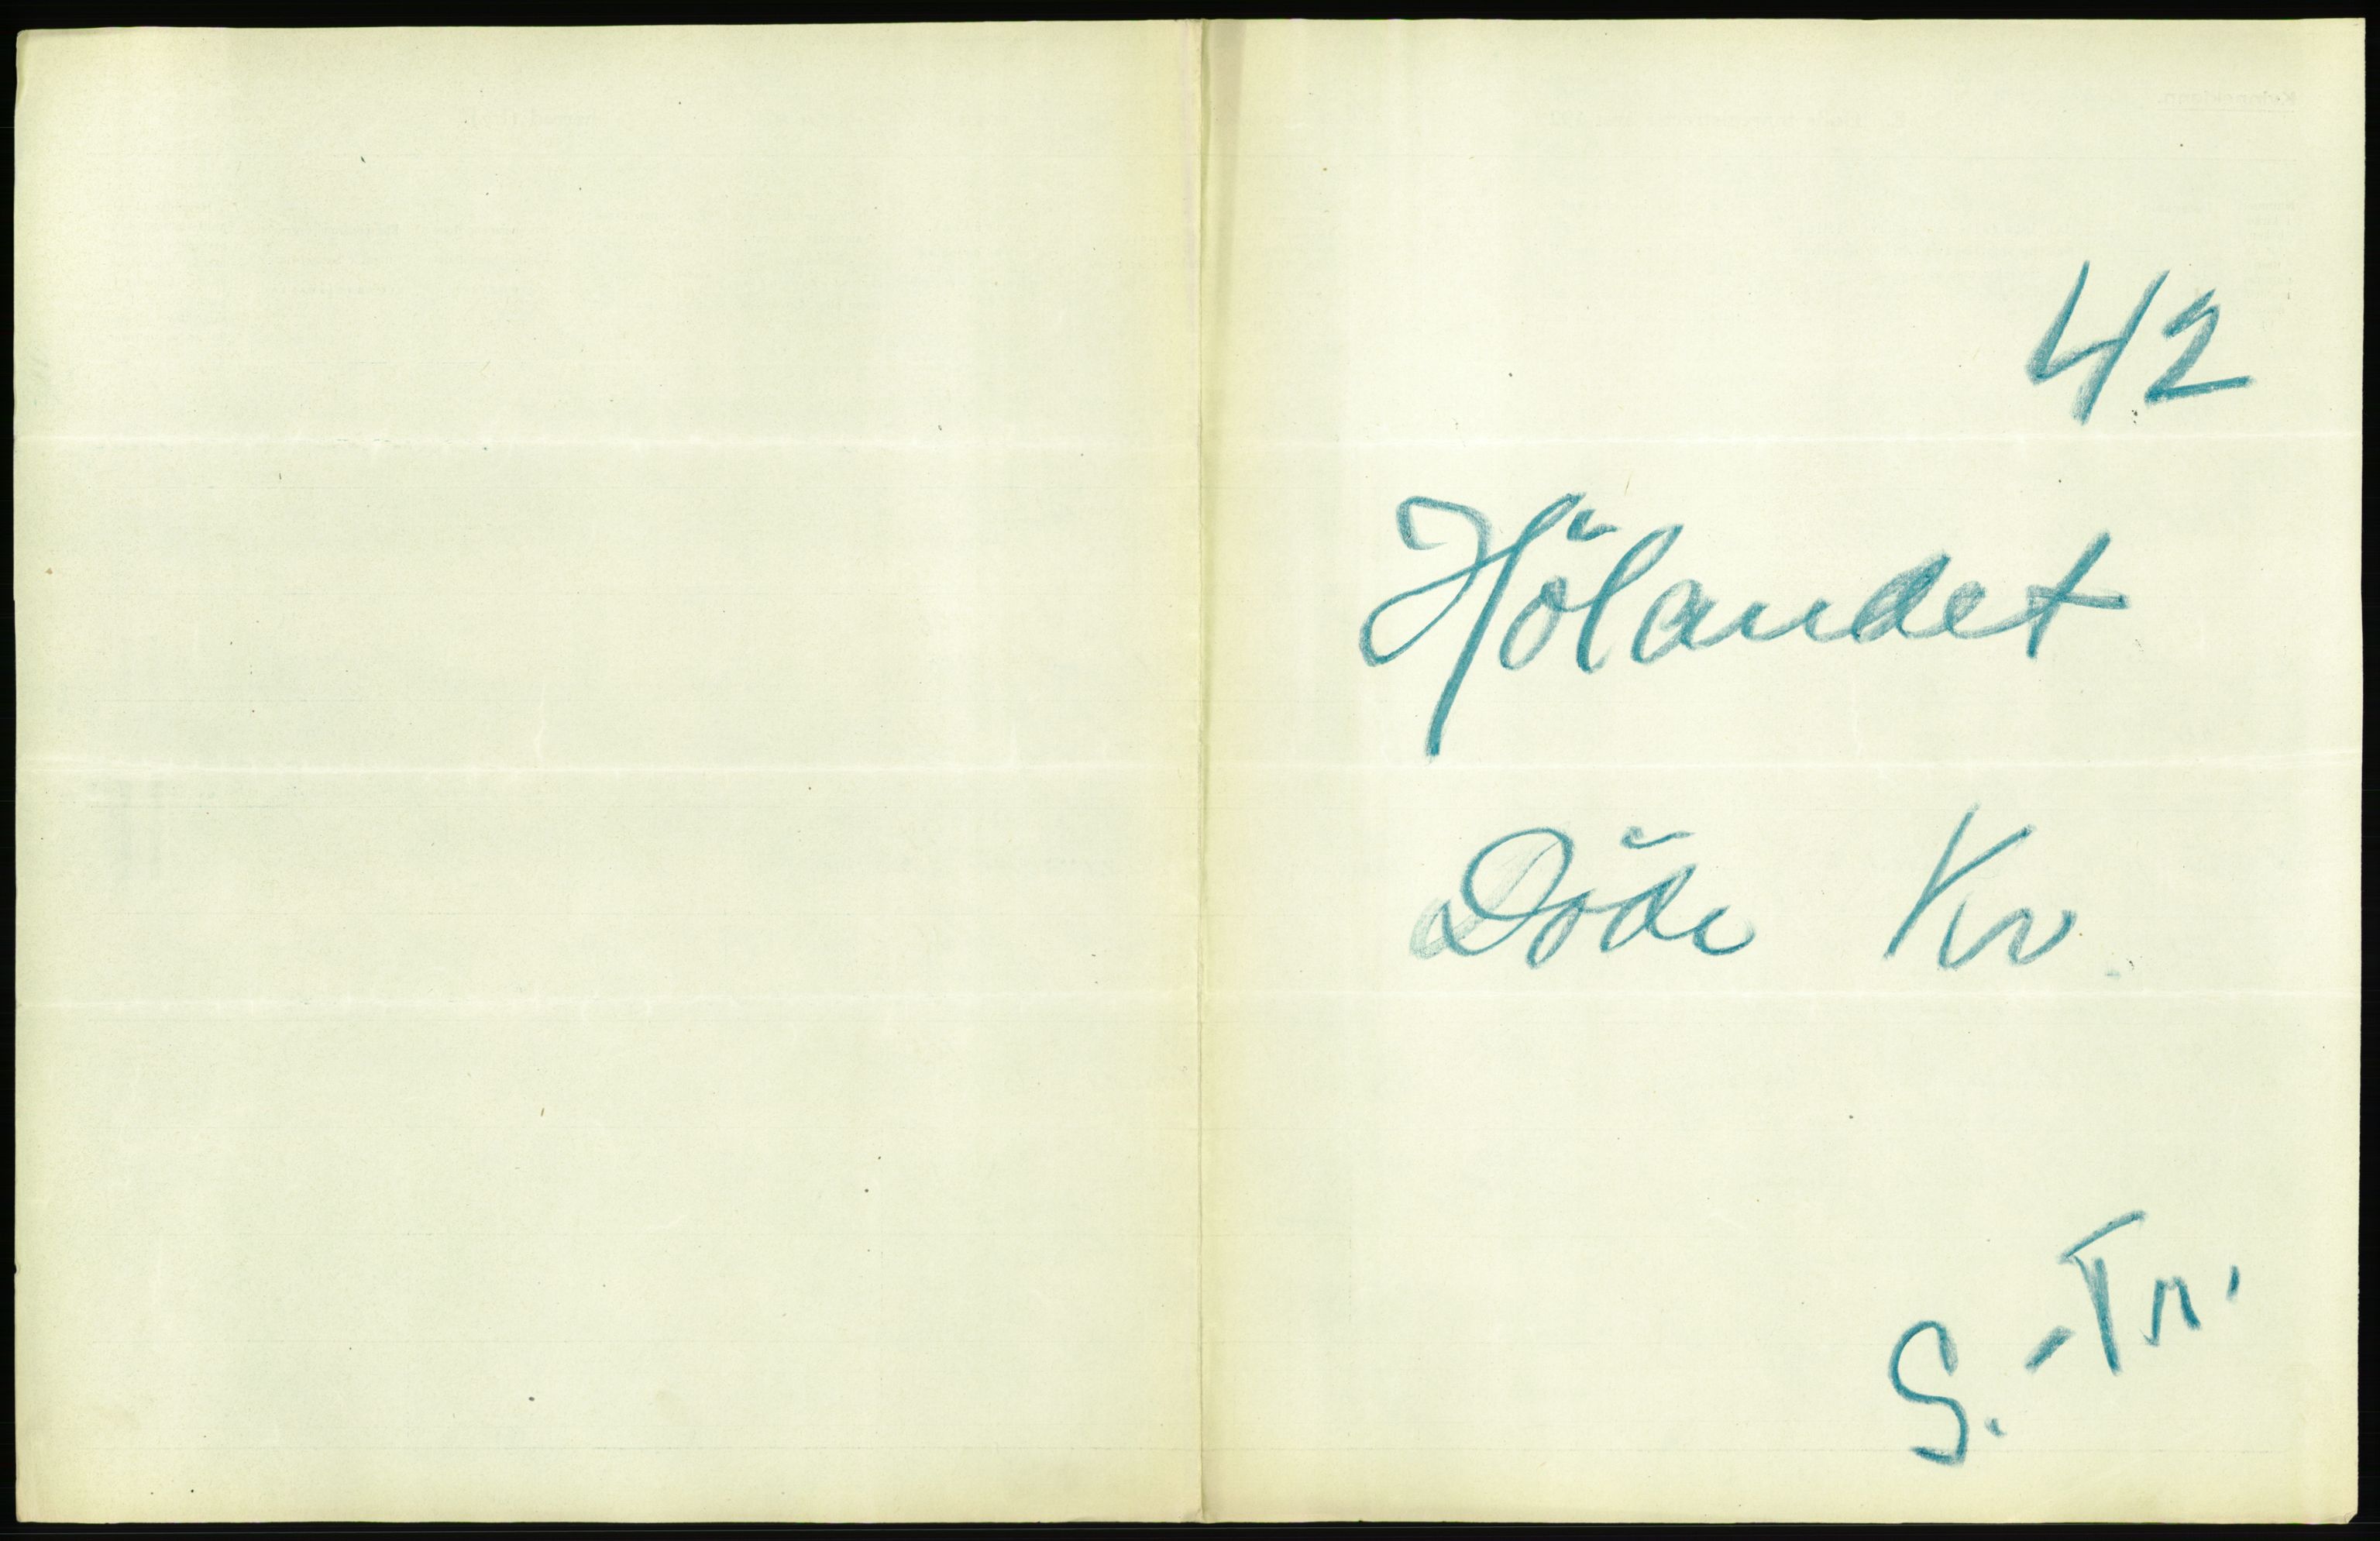 42
Hölandet
Döde Kv.
S.-Tr.